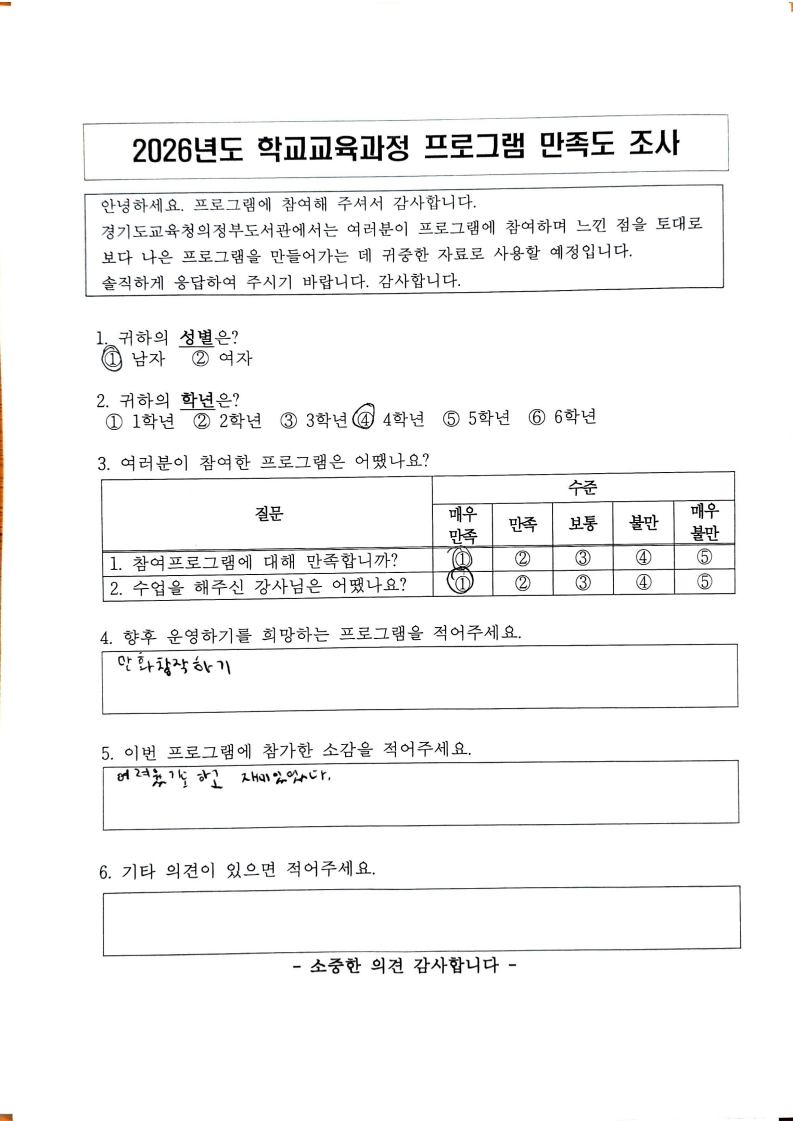 2026년도 학교교육과정 프로그램 만족도 조사
안녕하세요. 프로그램에 참여해 주셔서 감사합니다.
경기도교육청의정부도서관에서는 여러분이 프로그램에 참여하며 느낀 점을 토대로
보다 나은 프로그램을 만들어가는 데 귀중한 자료로 사용할 예정입니다.
솔직하게 응답하여 주시기 바랍니다. 감사합니다.
1. 귀하의 성별은?
① 남자 ② 여자
2. 귀하의 학년은?
① 1학년 ② 2학년 ③ 3학년 ④ 4학년 ⑤ 5학년 ⑥ 6학년
3. 여러분이 참여한 프로그램은 어땠나요?
질문 수준
매우 만족 만족 보통 불만 매우 불만
1. 참여프로그램에 대해 만족합니까? ① ② ③ ④ ⑤
2. 수업을 해주신 강사님은 어땠나요? ① ② ③ ④ ⑤
4. 향후 운영하기를 희망하는 프로그램을 적어주세요.
만화창작하기
5. 이번 프로그램에 참가한 소감을 적어주세요.
하고 재미있었다.
6. 기타 의견이 있으면 적어주세요.
- 소중한 의견 감사합니다 -